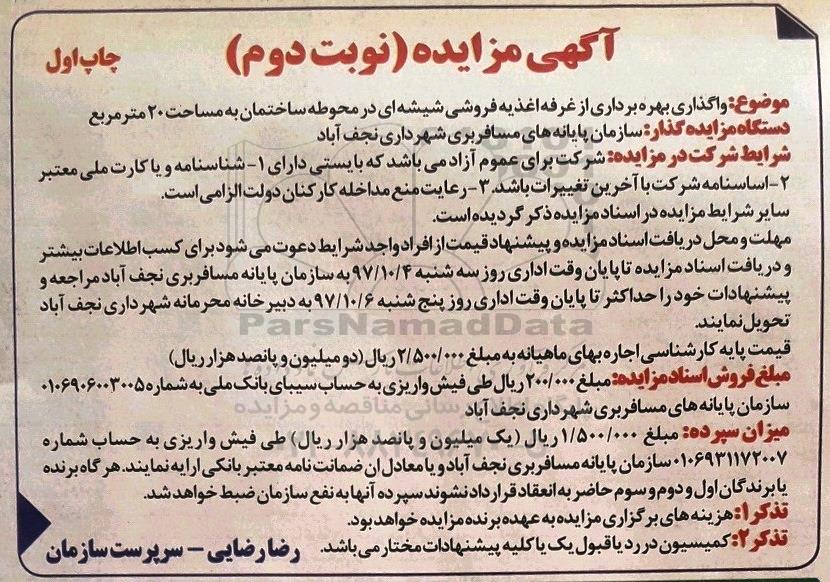 آگهی مزایده (نوبت دوم)
چاپ اول
موضوع: واگذاری بهره برداری از غرفه اغذیه فروشی شیشه ای در محوطه ساختمان به مساحت ۲۰ مترمربع
دستگاه مزایده گذار: سازمان پایانه های مسافربری شهرداری نجف آباد
شرایط شرکت در مزایده: شرکت برای عموم آزاد می باشد که بایستی دارای ۱- شناسنامه و یا کارت ملی معتبر
۲- اساسنامه شرکت با آخرین تغییرات باشد. ۳- رعایت منع مداخله کارکنان دولت الزامی است.
سایر شرایط مزایده در اسناد مزایده ذکر گردیده است.
مهلت و محل دریافت اسناد مزایده و پیشنهاد قیمت از افراد واجد شرایط دعوت می شود برای کسب اطلاعات بیشتر
و دریافت اسناد مزایده تا پایان وقت اداری روز سه شنبه ۹۷/۱۰/۴ به سازمان پایانه مسافربری نجف آباد مراجعه و
پیشنهادات خود را حداکثر تا پایان وقت اداری روز پنج شنبه ۹۷/۱۰/۶ به دبیرخانه محرمانه شهرداری نجف آباد
تحویل نمایند.
ParsNamadData
قیمت پایه کارشناسی اجاره بهای ماهیانه به مبلغ ۲/۵۰۰/۰۰۰ ریال (دو میلیون و پانصد هزار ریال)
مبلغ فروش اسناد مزایده: مبلغ ۲۰۰/۰۰۰ ریال طی فیش واریزی به حساب سیبای بانک ملی به شماره ۰۱۰۶۹۰۶۰۰۳۰۰۵
سازمان پایانه های مسافربری شهرداری نجف آباد
میزان سپرده: مبلغ ۱/۵۰۰/۰۰۰ ریال (یک میلیون و پانصد هزار ریال) طی فیش واریزی به حساب شماره
۰۱۰۶۹۳۱۱۷۲۰۰۷ سازمان پایانه مسافربری نجف آباد و یا معادل ان ضمانت نامه معتبر بانکی ارایه نمایند. هر گاه برنده
یا برندگان اول و دوم و سوم حاضر به انعقاد قرارداد نشوند سپرده آنها به نفع سازمان ضبط خواهد شد.
تذکر ۱: هزینه های برگزاری مزایده به عهده برنده مزایده خواهد بود.
تذکر ۲: کمیسیون در رد یا قبول یک یا کلیه پیشنهادات مختار می باشد.
رضا رضایی - سرپرست سازمان